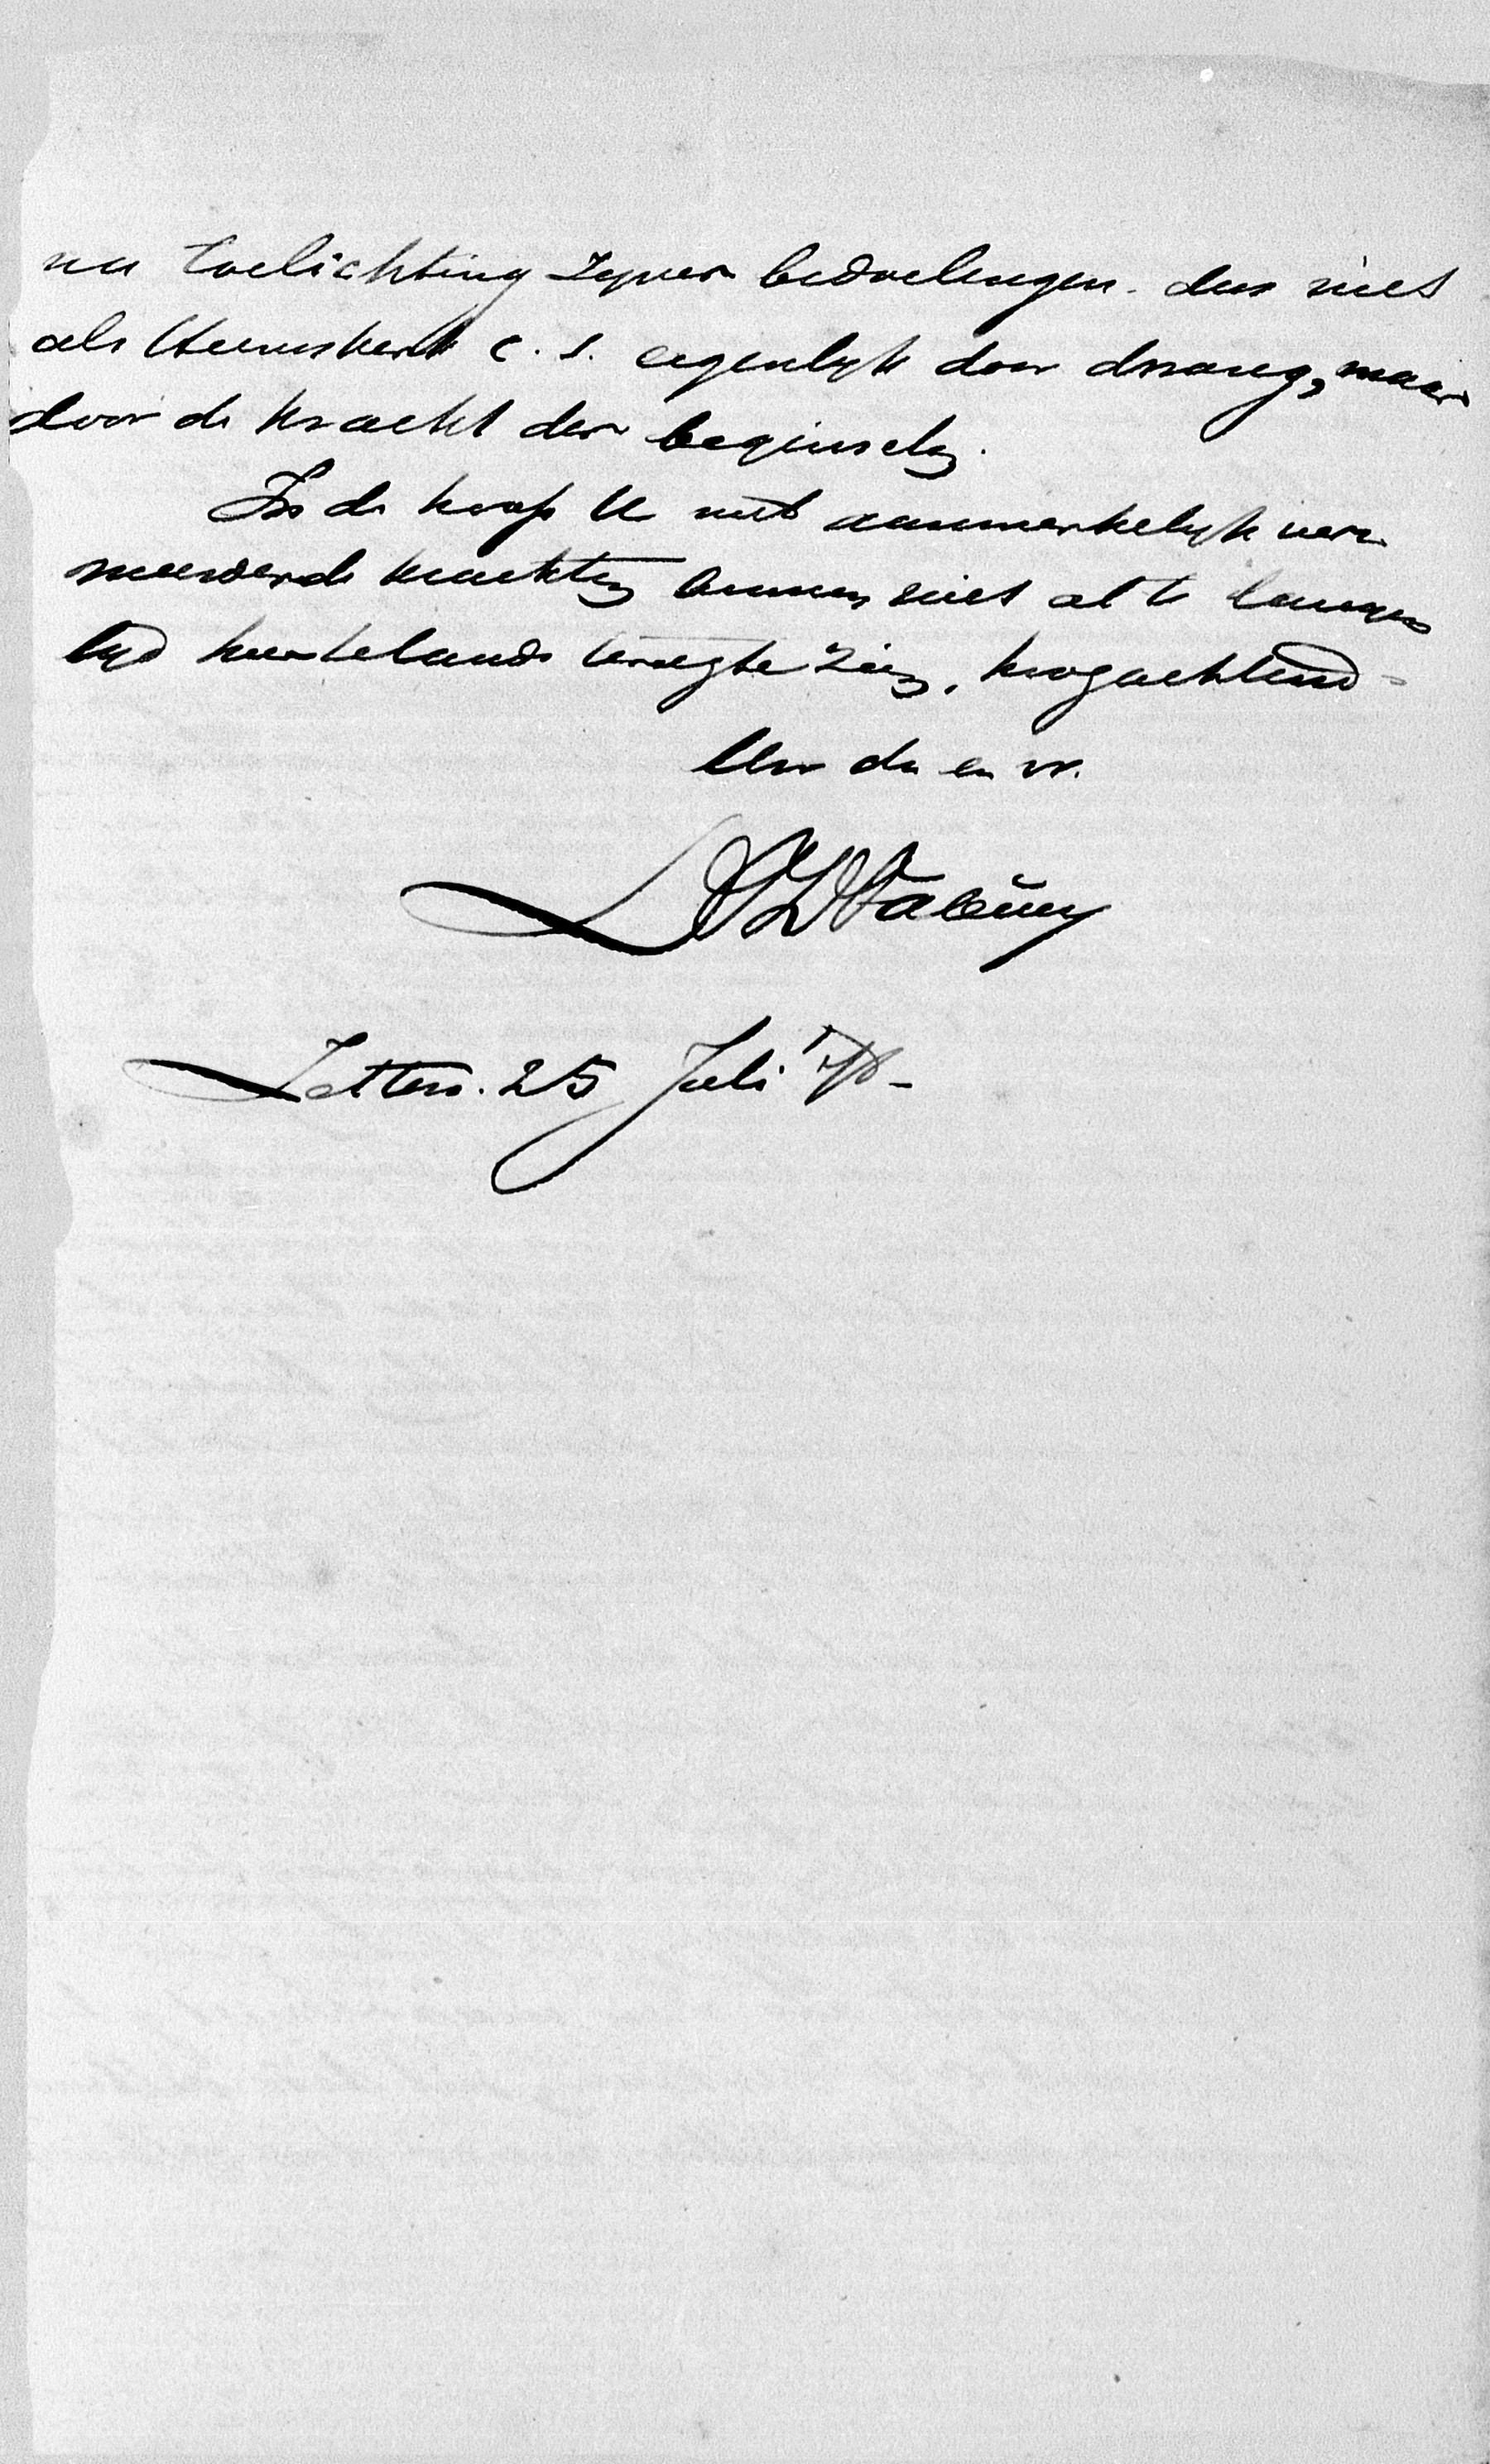 na toelichting zyner bedoelingen. dus niet
als Heemskerk c.s. eigenlyk door drang, maar
door de kracht der beginselen.
In de hoop U met aanmerkelyk ver-
meerderde krachten binnen niet al te langen
tyd hier te lande terug te zien, hoogachtend -
Uw dr en vr.
Zetten. 25 Juli '78 -